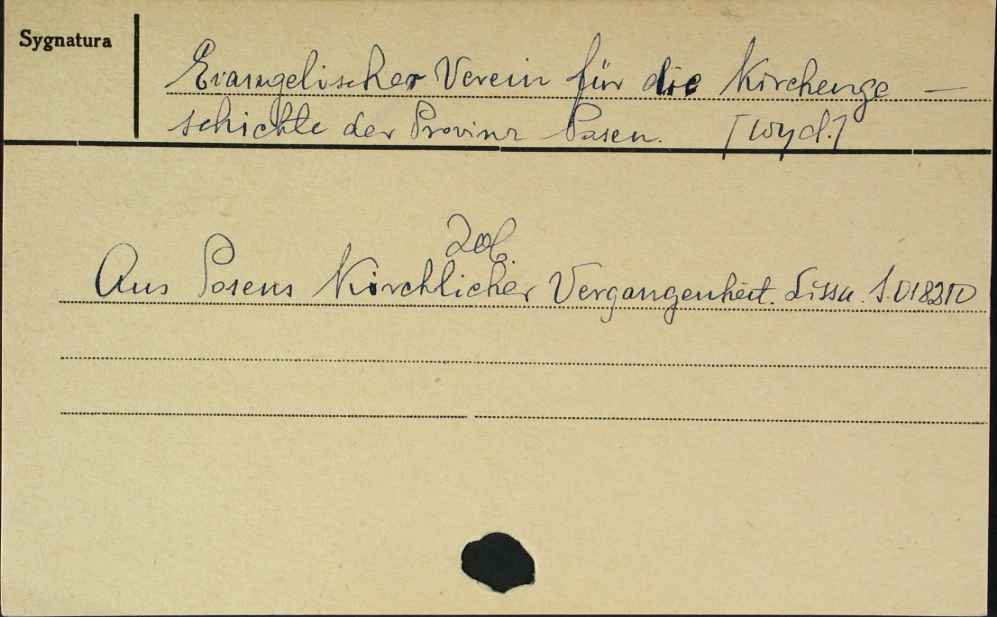 Sygnatura
Evangelischer Verein für die Kirchenge –
schichte der Provinz Posen. [wyd.]
Zob.
Aus Posens Kirchlicher Vergangenheit. Lissa. S.018210